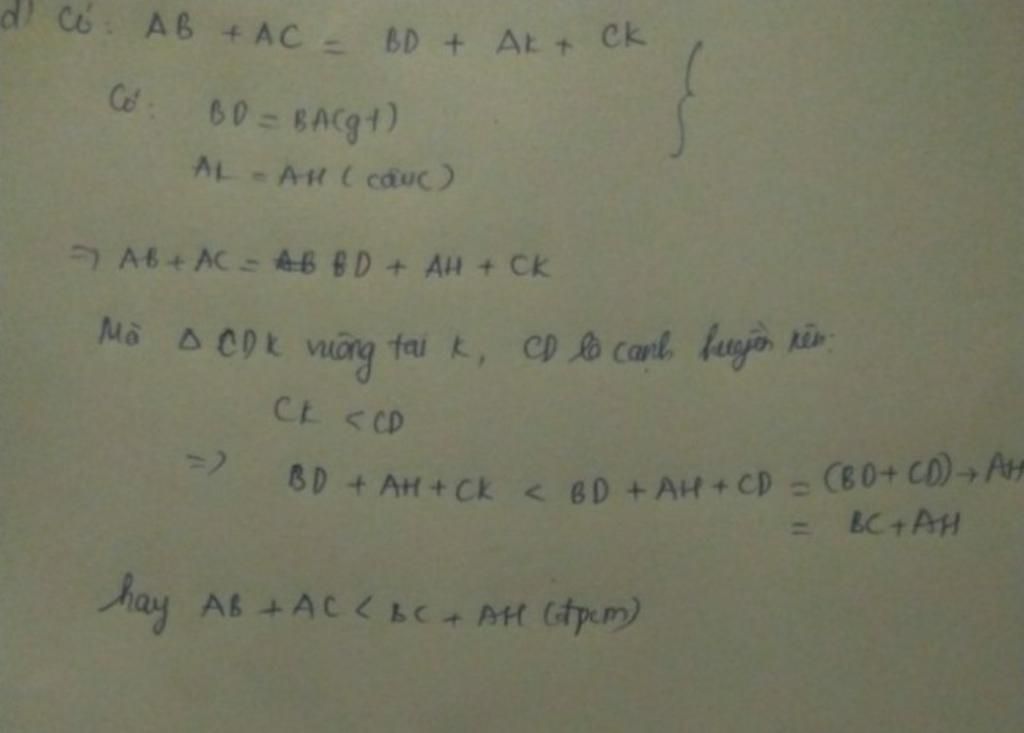 d) Có: AB + AC = BD + AK + CK
Có: BD = BA (gt)
AK = AH (câu c)
=> AB + AC = BD + AH + CK
Mà Δ CDK vuông tại K, CD là cạnh huyền nên:
CK < CD
=> BD + AH + CK < BD + AH + CD = (BD + CD) + AH
= BC + AH
hay AB + AC < BC + AH (đpcm)